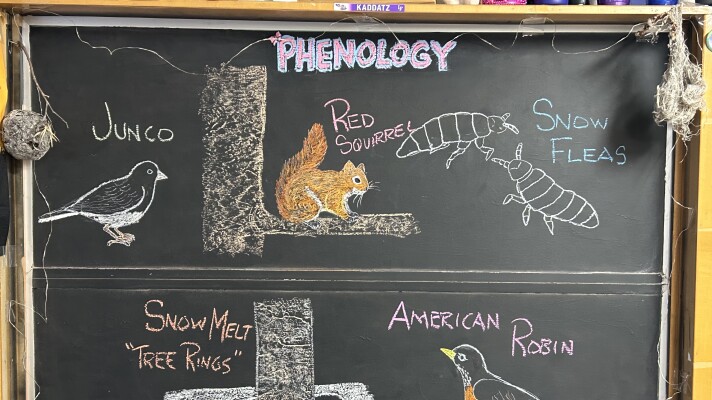 KADDATZ
PHENOLOGY
JUNCO
RED
SQUIRREL
SNOW
FLEAS
SNOW MELT
"TREE RINGS"
AMERICAN
ROBIN